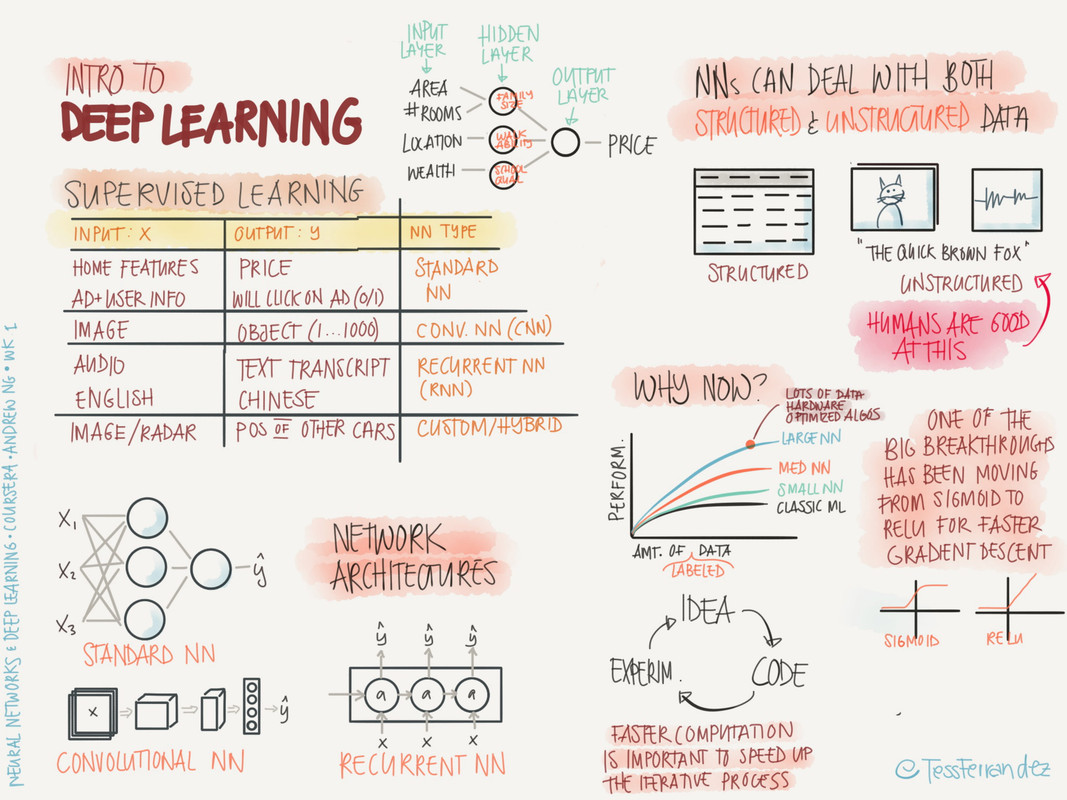 INTRO TO
DEEP LEARNING
INPUT
LAYER
HIDDEN
LAYER
OUTPUT
LAYER
AREA
#ROOMS
LOCATION
WEALTH
FAMILY
SIZE
WALK
ABILITY
SCHOOL
QUAL
PRICE
SUPERVISED LEARNING
INPUT: X OUTPUT: y NN TYPE
HOME FEATURES PRICE STANDARD
AD+USER INFO WILL CLICK ON AD (0/1) NN
IMAGE OBJECT (1...1000) CONV. NN (CNN)
AUDIO TEXT TRANSCRIPT RECURRENT NN
ENGLISH CHINESE (RNN)
IMAGE/RADAR POS OF OTHER CARS CUSTOM/HYBRID
NNs CAN DEAL WITH BOTH
STRUCTURED & UNSTRUCTURED DATA
STRUCTURED
"THE QUICK BROWN FOX"
UNSTRUCTURED
HUMANS ARE GOOD
AT THIS
WHY NOW?
LOTS OF DATA
HARDWARE
OPTIMIZED ALGOS
LARGE NN
MED NN
SMALL NN
CLASSIC ML
PERFORM.
AMT. OF DATA
LABELED
ONE OF THE
BIG BREAKTHROUGHS
HAS BEEN MOVING
FROM SIGMOID TO
RELU FOR FASTER
GRADIENT DESCENT
SIGMOID
RELU
IDEA
CODE
EXPERIM.
FASTER COMPUTATION
IS IMPORTANT TO SPEED UP
THE ITERATIVE PROCESS
NETWORK
ARCHITECTURES
X1
X2
X3
ŷ
STANDARD NN
X
ŷ
CONVOLUTIONAL NN
ŷ ŷ ŷ
a a a
X X X
RECURRENT NN
NEURAL NETWORKS & DEEP LEARNING • COURSERA • ANDREW NG • WK 1
@TessFerrandez